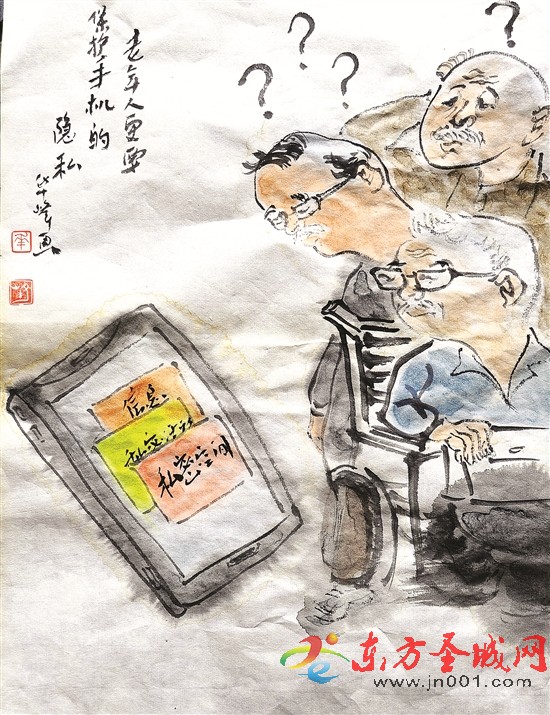 老年人更要
保护手机的
隐私
峰画
? ? ? ?
信息
私密
私密空间
东方圣城网
www.jn001.com